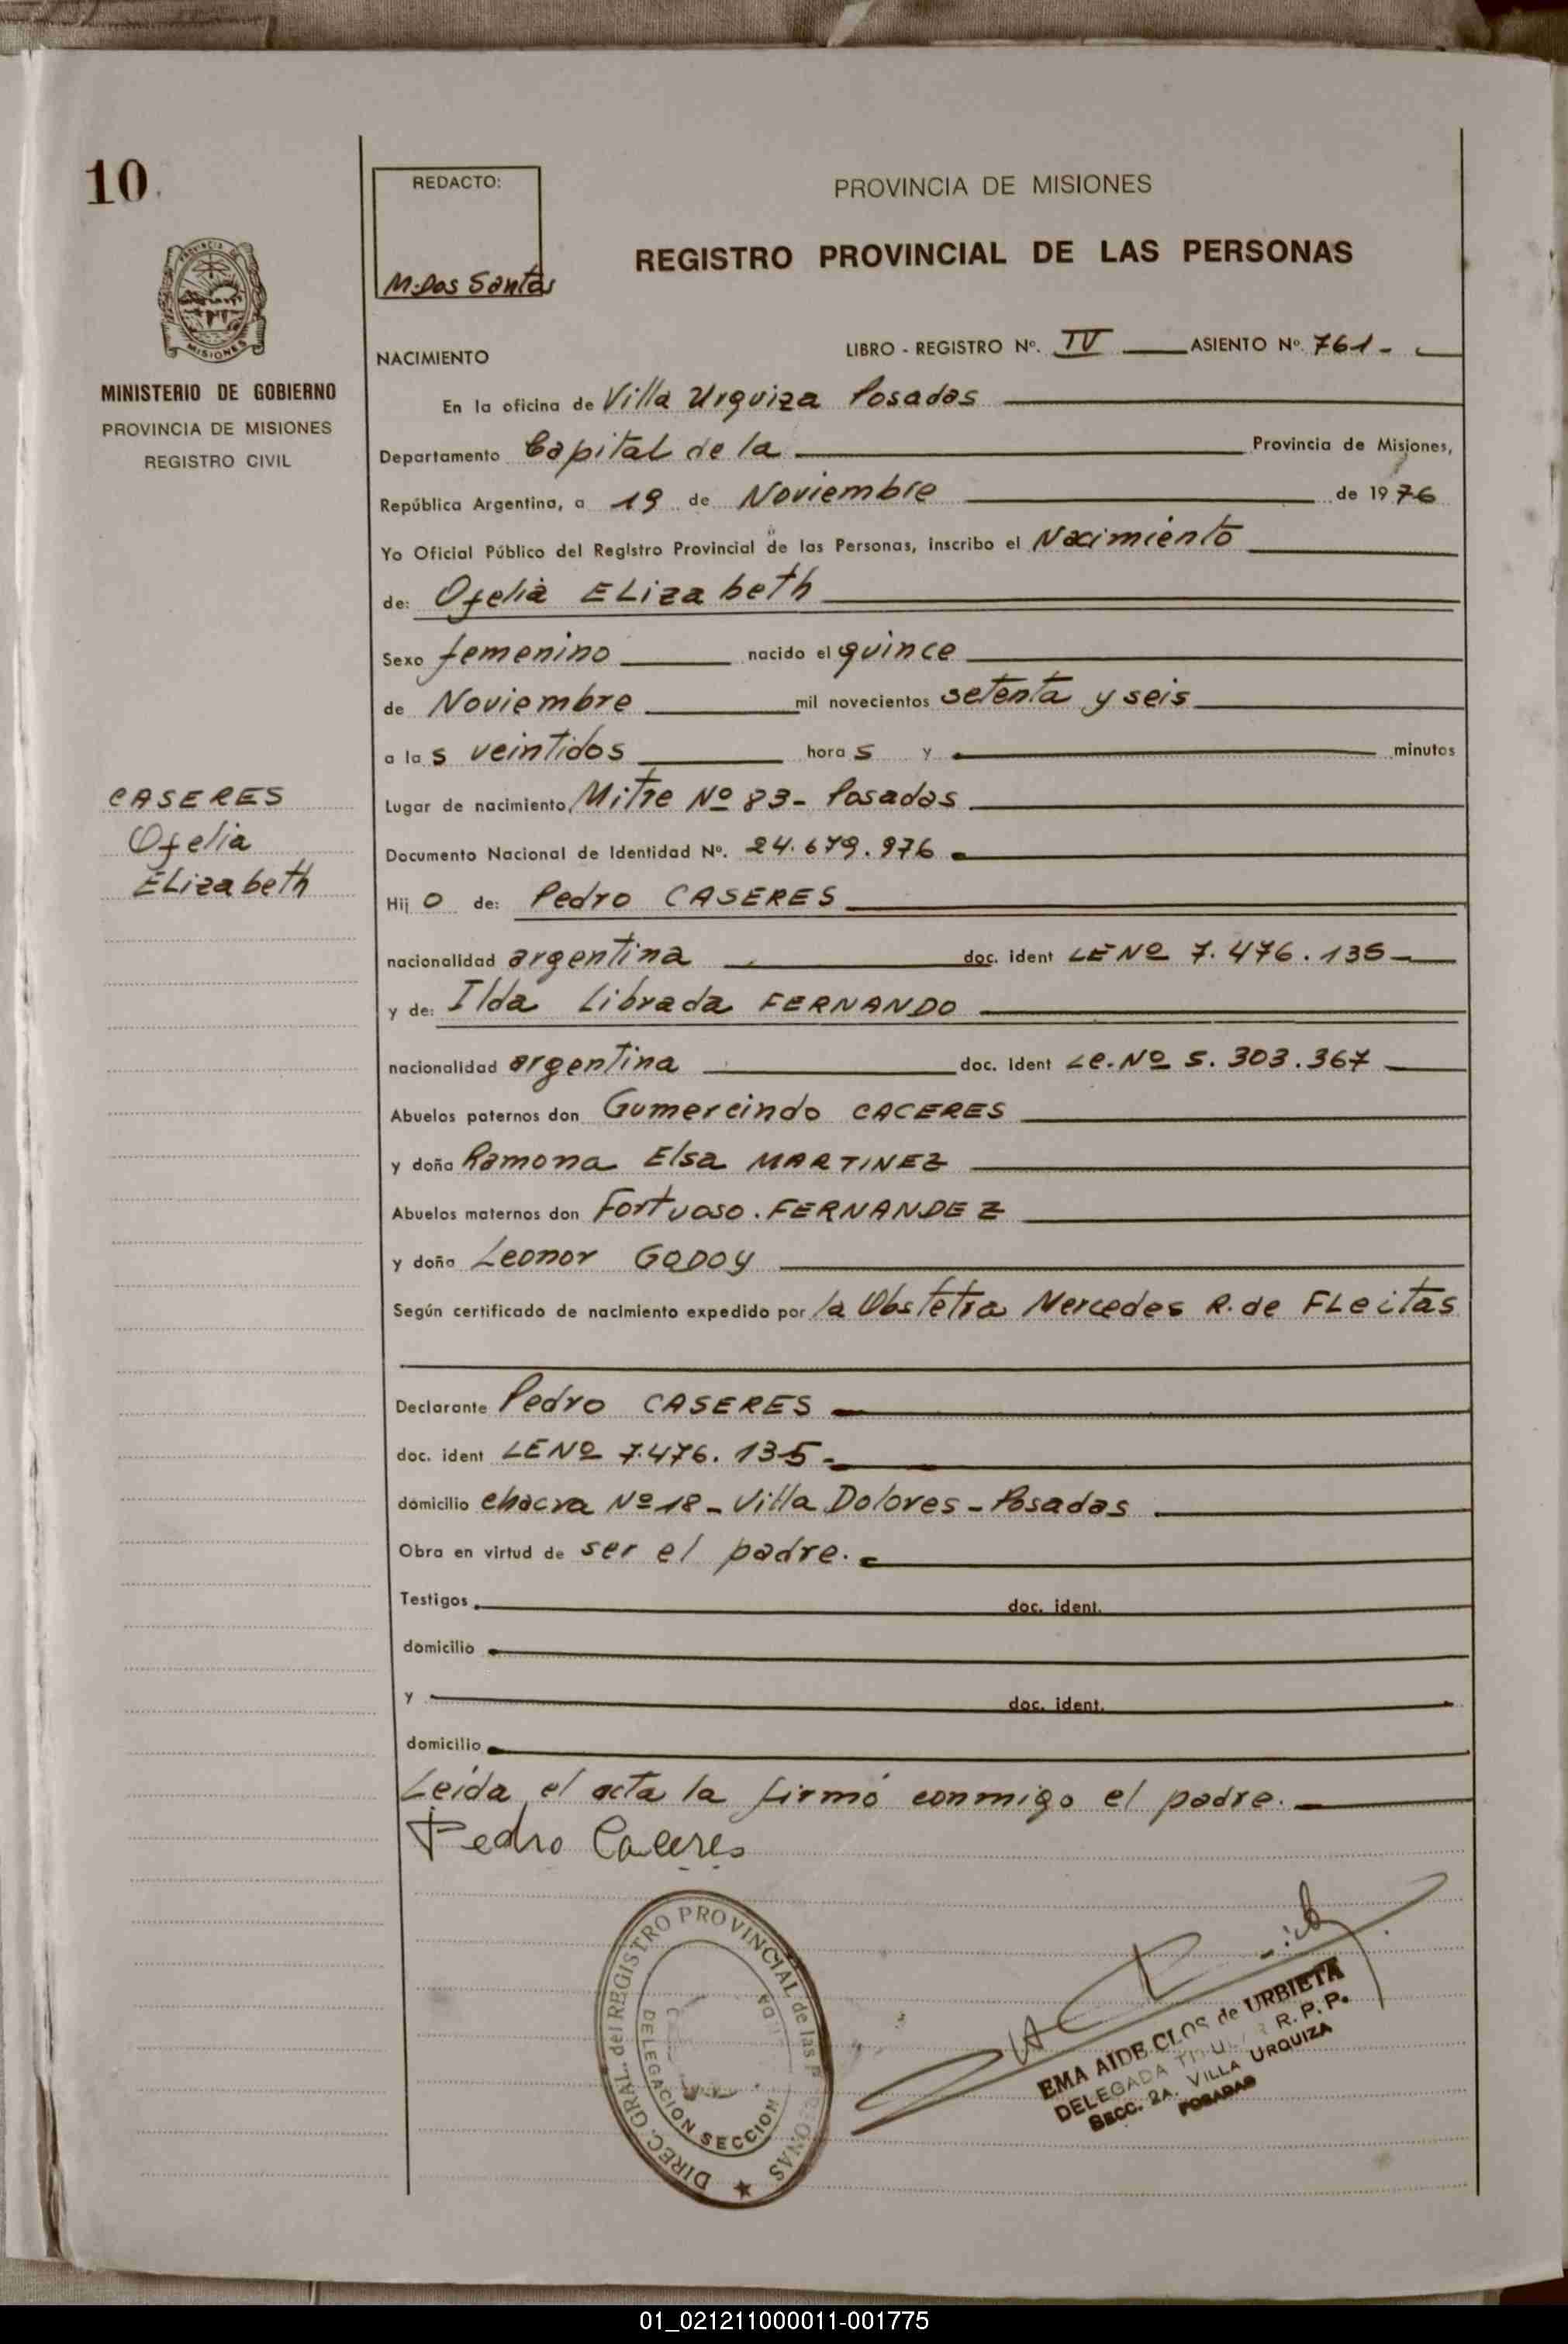 10
REDACTO:
M. Dos Santos
PROVINCIA DE MISIONES
REGISTRO PROVINCIAL DE LAS PERSONAS
MISIONES
MINISTERIO DE GOBIERNO
PROVINCIA DE MISIONES
REGISTRO CIVIL
NACIMIENTO
LIBRO - REGISTRO Nº. IV ASIENTO Nº. 761-
En la oficina de Villa Urquiza Posadas
Departamento Capital de la Provincia de Misiones,
República Argentina, a 19 de Noviembre de 1976
Yo Oficial Público del Registro Provincial de las Personas, inscribo el Nacimiento
de: Ofelia ELizabeth
Sexo femenino nacido el quince
de Noviembre mil novecientos setenta y seis
a las veintidos horas y minutos
CASERES
Ofelia
ELizabeth
Lugar de nacimiento Mitre Nº 83- Posadas
Documento Nacional de Identidad Nº. 24.679.976
Hijo de: Pedro CASERES
nacionalidad argentina doc. ident LE Nº 7.476.135-
y de: Ilda Librada FERNANDO
nacionalidad argentina doc. ident Le. Nº 5.303.367
Abuelos paternos don Gumercindo CACERES
y doña Ramona Elsa MARTINEZ
Abuelos maternos don Fortuoso. FERNANDEZ
y doña Leonor GODOY
Según certificado de nacimiento expedido por la Obstetra Mercedes R. de FLeitas
Declarante Pedro CASERES
doc. ident LE Nº 7.476.135-
domicilio chacra Nº 18- Villa Dolores- Posadas
Obra en virtud de ser el padre.
Testigos doc. ident.
domicilio
y doc. ident.
domicilio
Leída el acta la firmó conmigo el padre.
Pedro Caceres
DIREC. GRAL. del REGISTRO PROVINCIAL de las PERSONAS
DELEGACION SECCION
EMA AIDE CLOS de URBIETA
DELEGADA TITULAR R. P. P.
SECC. 2A. VILLA URQUIZA
POSADAS
01_021211000011-001775